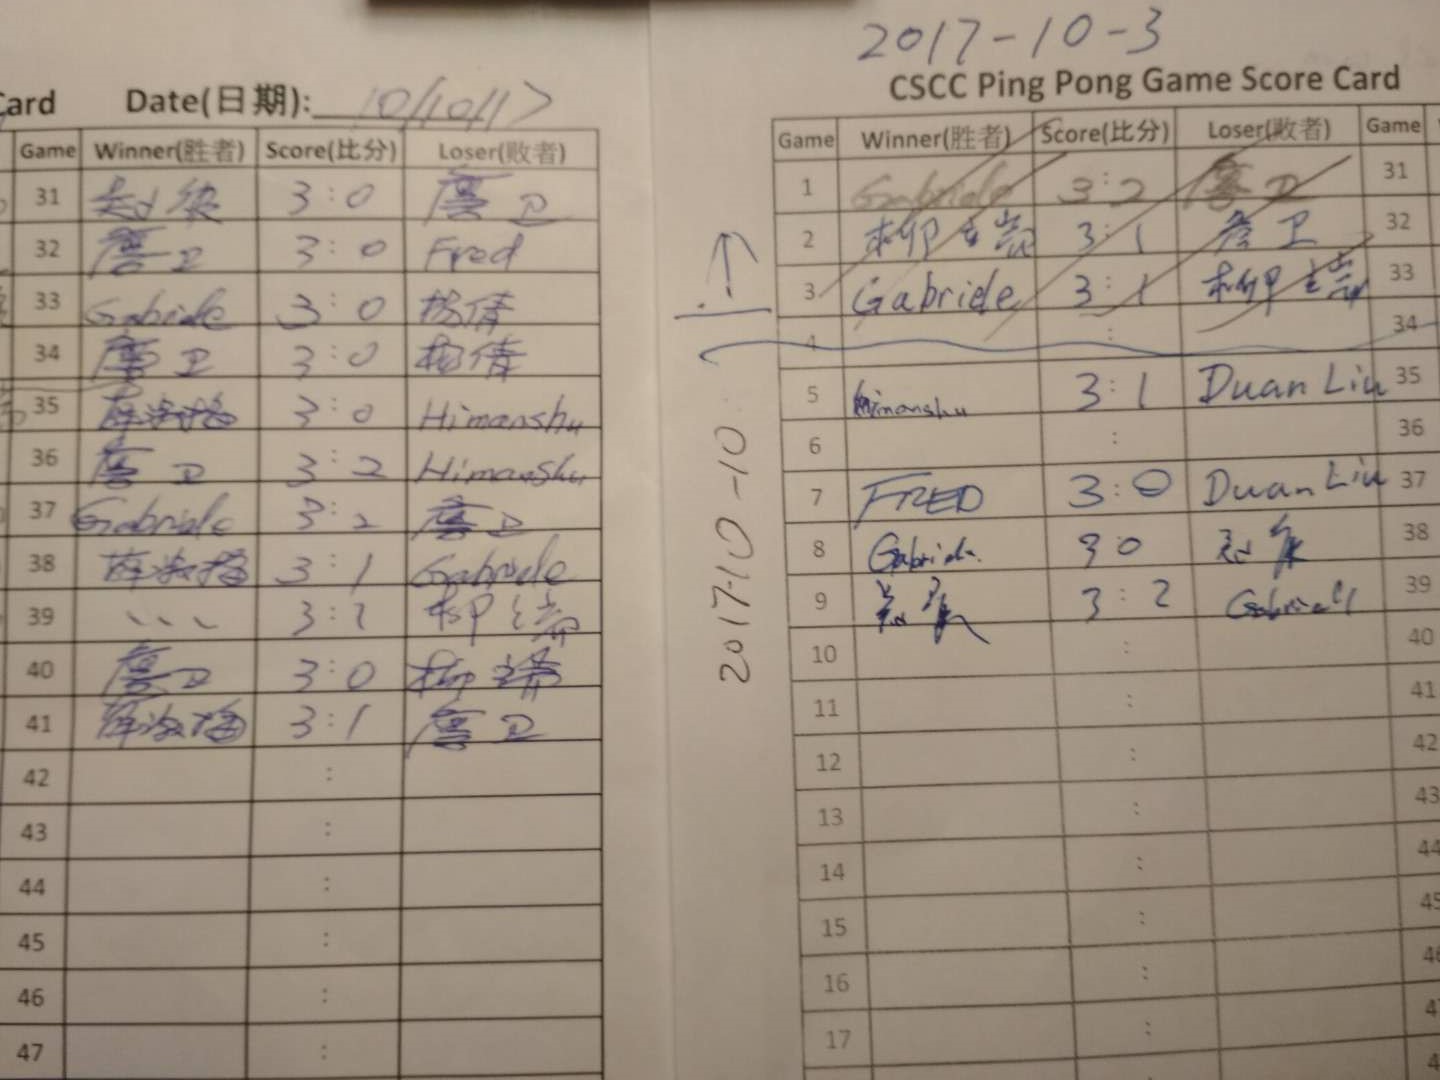 Card Date(日期): 10/10/17
Game Winner(胜者) Score(比分) Loser(败者)
31 3:0 唐卫
32 唐卫 3:0 Fred
33 Gabriele 3:0 杨倩
34 唐卫 3:0 杨倩
35 3:0 Himanshu
36 唐卫 3:2 Himanshu
37 Gabriele 3:2 唐卫
38 3:1 Gabriele
39 、、、 3:2
40 唐卫 3:0
41 3:1 唐卫
42 :
43 :
44 :
45 :
46 :
47 :
2017-10-3
CSCC Ping Pong Game Score Card
Game Winner(胜者) Score(比分) Loser(败者) Game
1 Gabriele 3:2 唐卫 31
2 3:1 唐卫 32
3 Gabriele 3:1 33
4 : 34
5 Himanshu 3:1 Duan Liu 35
6 : 36
7 FRED 3:0 Duan Liu 37
8 Gabriele 3:0 38
9 3:2 Gabriell 39
10 : 40
11 : 41
12 : 42
13 : 43
14 : 44
15 : 45
16 : 46
17 :
2017-10-10